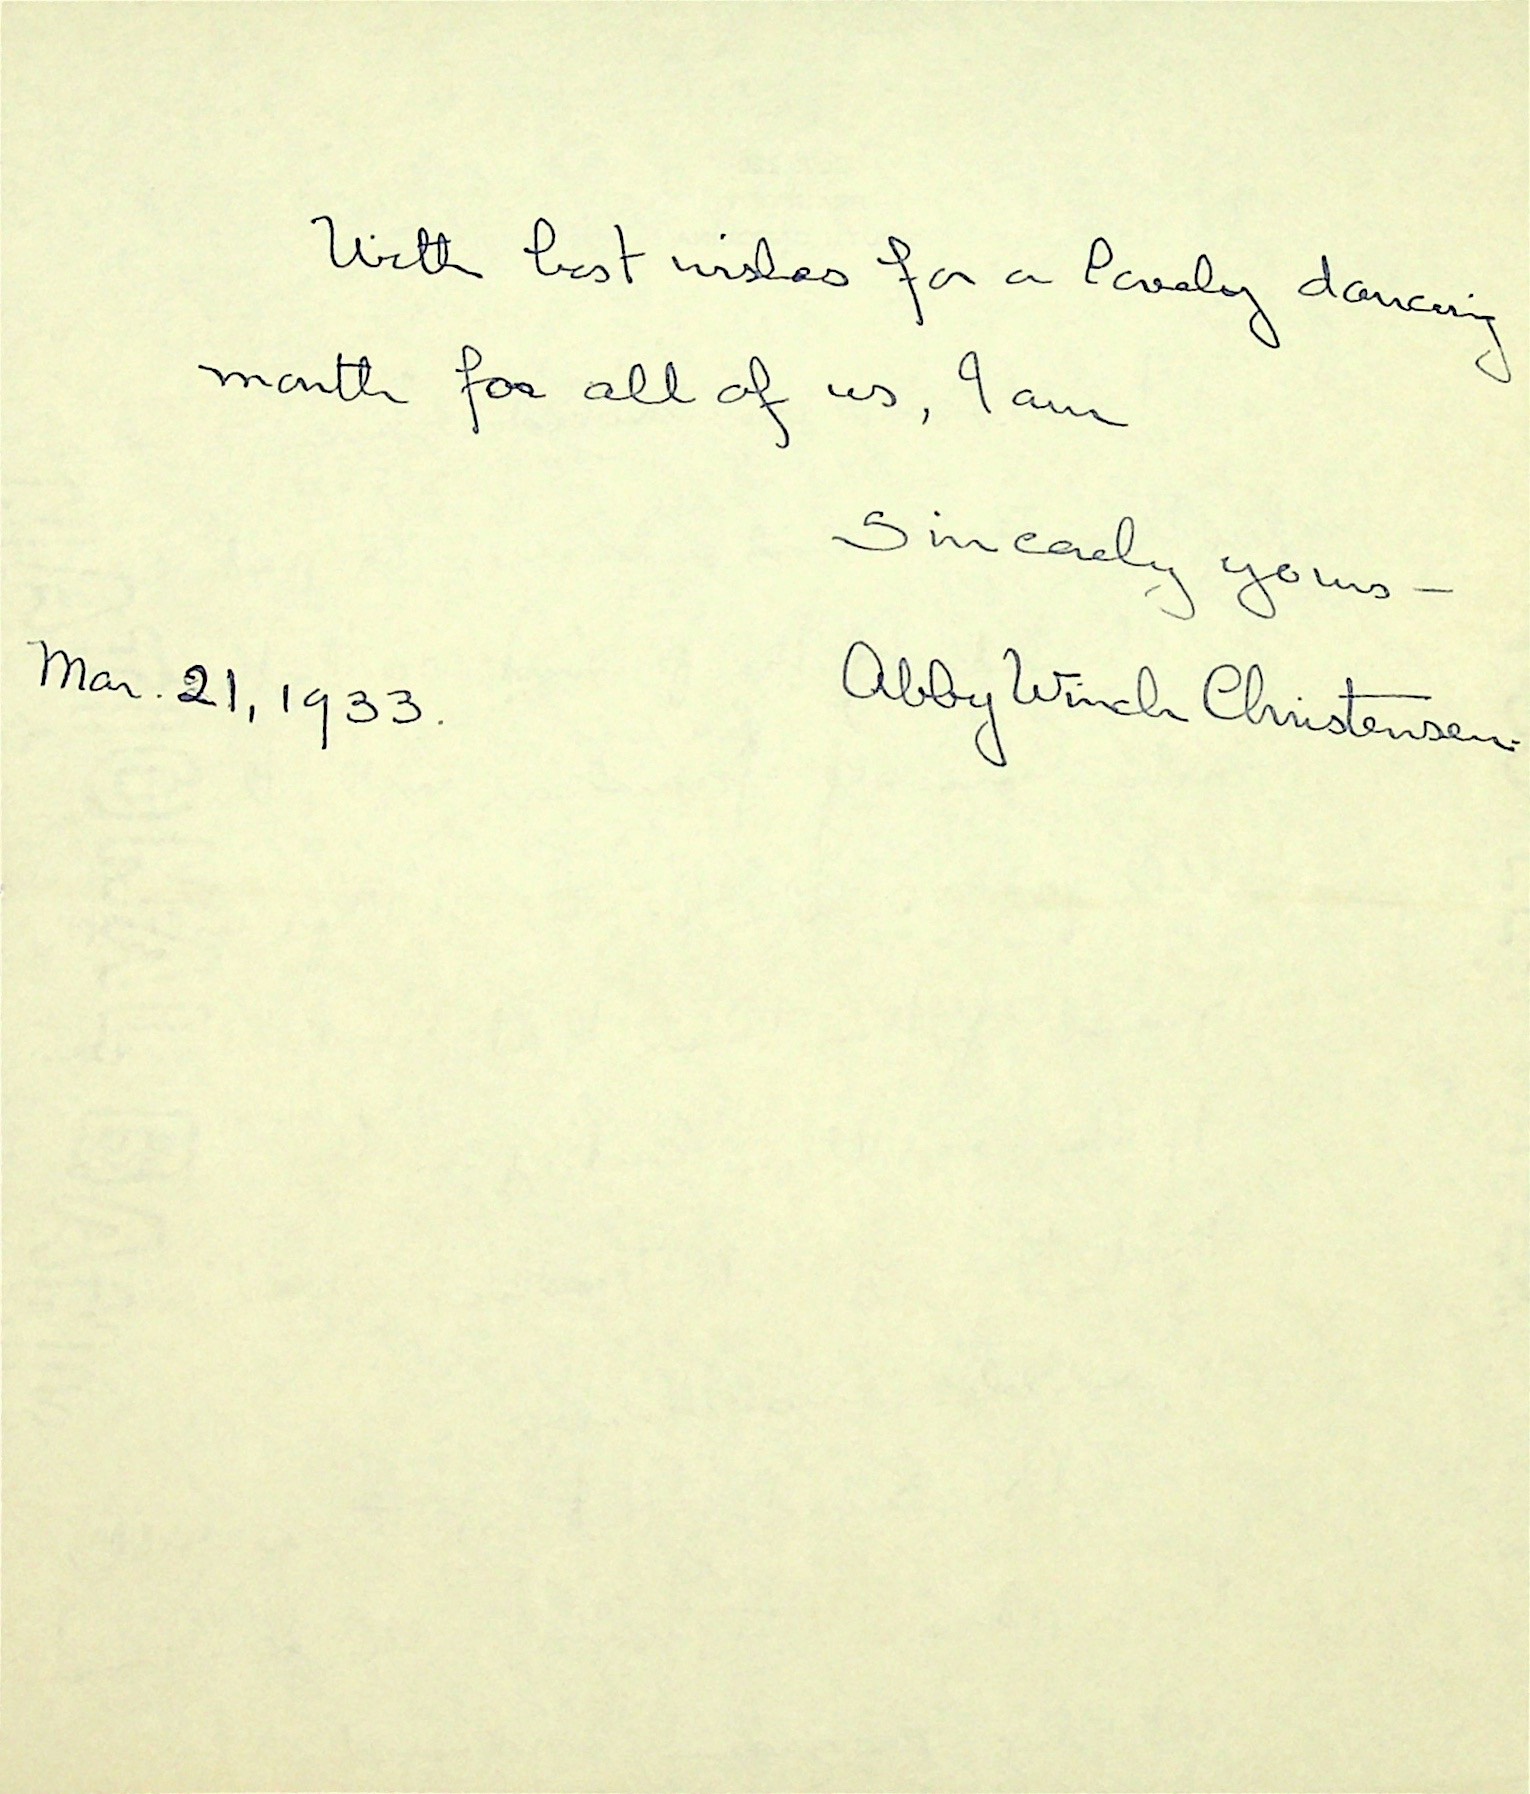 With best wishes for a lovely dancing
month for all of us, I am
Sincerely yours —
Mar. 21, 1933.
Abby Winch Christensen.